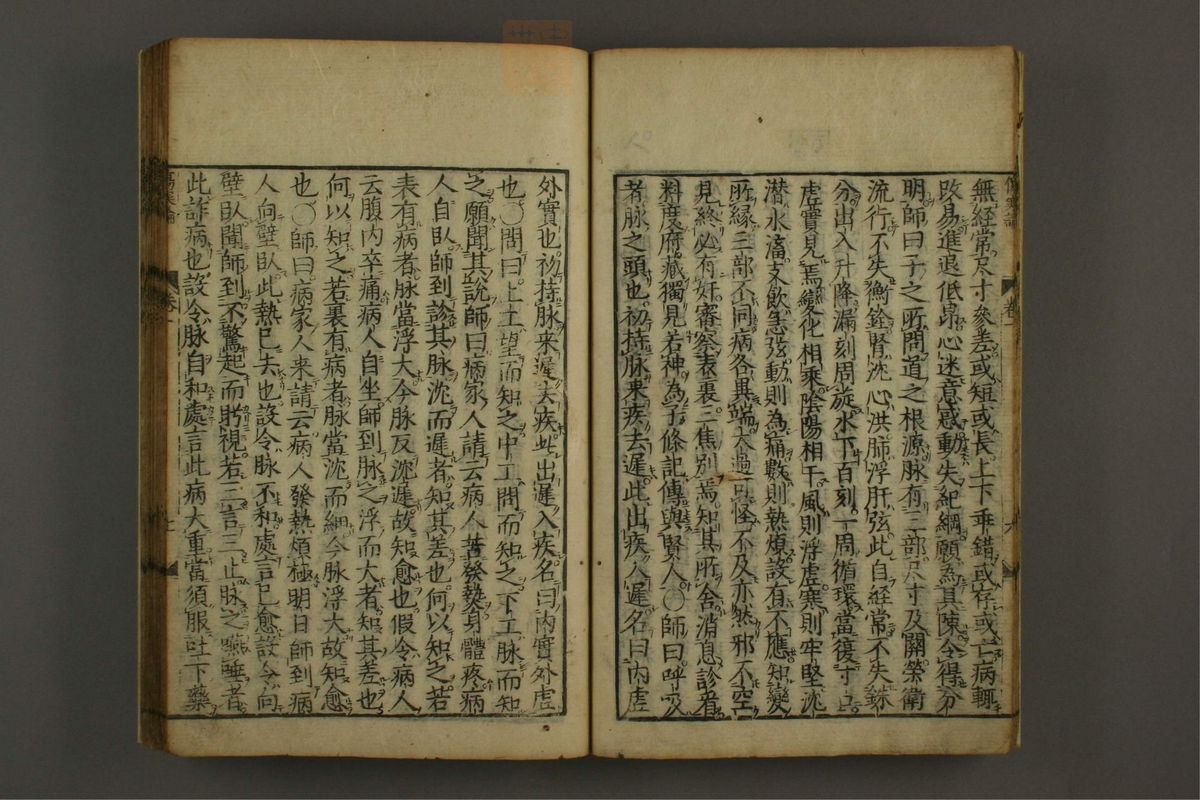 無經常尺寸參差或短或長上下乖錯或存或亡病輒
改易進退低昂心迷意惑動失紀綱願為其陳令得分
明師曰子之所問道之根源脉有三部尺寸及關榮衛
流行不失衡銓腎沈心洪肺浮肝弦此自經常不失銖
分出入升降漏刻周旋水下百刻一周循環當復寸口
虛實見焉變化相乘陰陽相干風則浮虛寒則牢堅沈
潜水滀支飲急弦動則為痛數則熱煩設有不應知變
所緣三部不同病各異端太過可怪不及亦然邪不空
見終必有奸審察表裏三焦別焉知其所舍消息診看
料度府藏獨見若神為子條記傳與賢人〇師曰呼吸
者脉之頭也初持脉來疾去遲此出疾入遲名曰內虛
外實也初持脉來遲去疾此出遲入疾名曰內實外虛
也〇問曰上工望而知之中工問而知之下工脉而知
之願聞其說師曰病家人請云病人苦發熱身體疼病
人自臥師到診其脉沈而遲者知其差也何以知之若
表有病者脉當浮大今脉反沈遲故知愈也假令病人
云腹內卒痛病人自坐師到脉之浮而大者知其差也
何以知之若裏有病者脉當沈而細今脉浮大故知愈
也〇師曰病家人來請云病人發熱煩極明日師到病
人向壁臥此熱已去也設令脉不和處言已愈設令向
壁臥聞師到不驚起而盻視若三言三止脉之嚥唾者
此詐病也設令脉自和處言此病大重當須服吐下藥